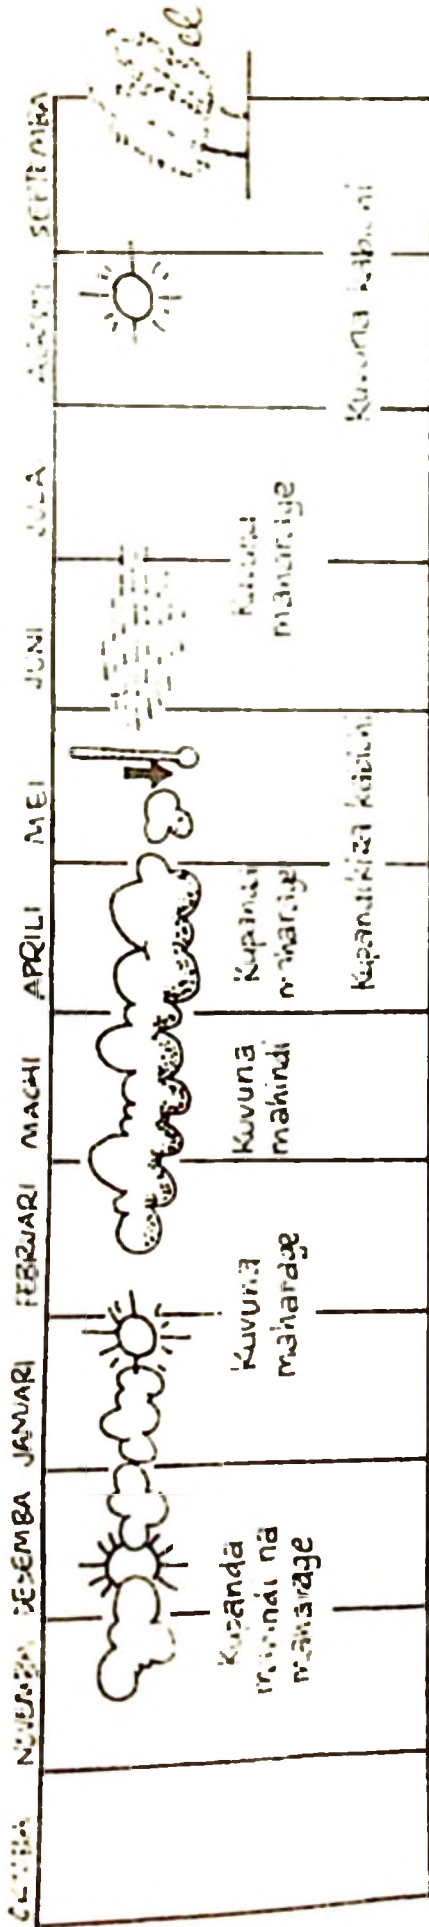 NOVEMBA DESEMBA JANUARI FEBRUARI MACHI APRILI MEI JUNI JULAI AGOSTI SEPTEMBA
Kupanda
mahindi na
maharage
Kuvuna
maharage
Kuvuna
mahindi
Kupanda
maharage
Kuvuna
maharage
Kupandikiza kabichi
Kuvuna kabichi